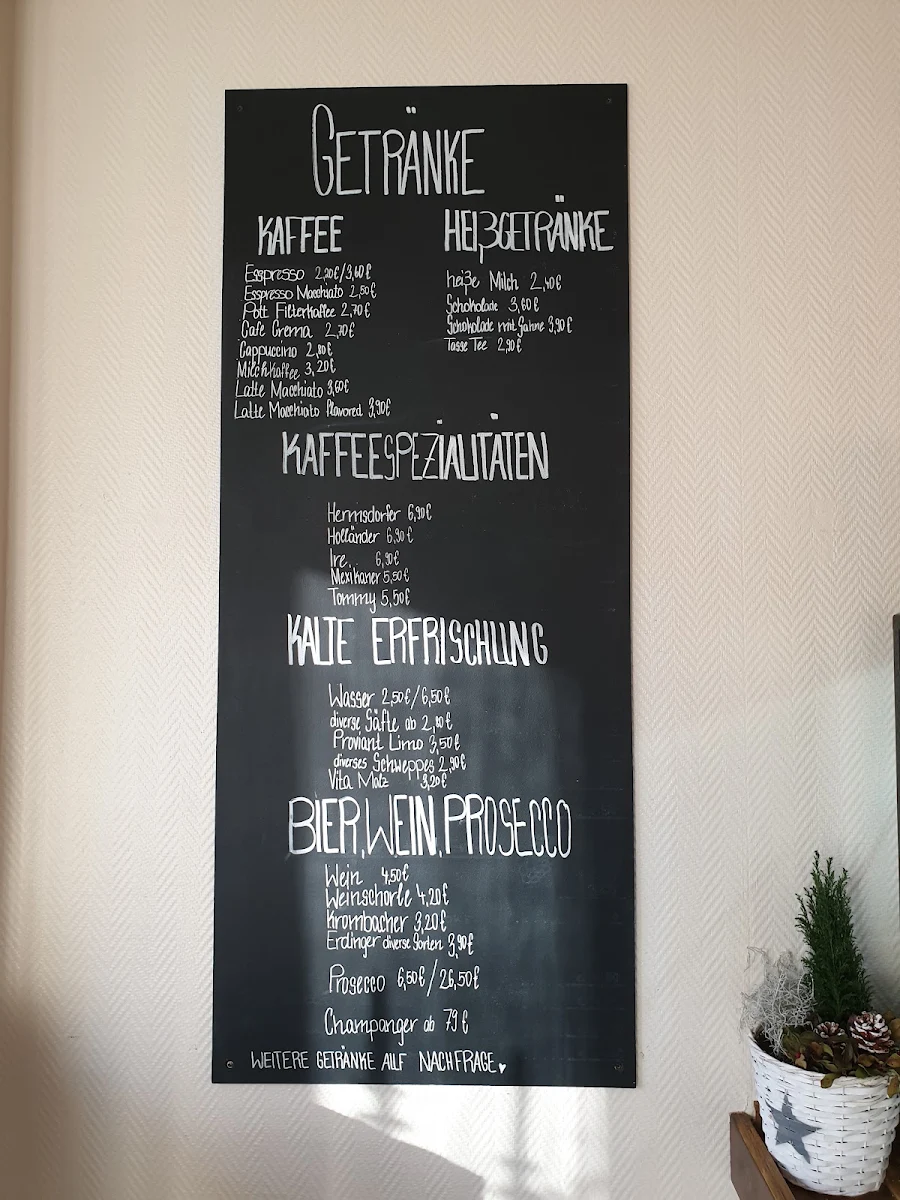 GETRÄNKE
KAFFEE
Esspresso 2,20€/3,60€
Esspresso Macchiato 2,50€
Pott Filterkaffee 2,70€
Café Crema 2,70€
Cappuccino 2,80€
Milchkaffee 3,20€
Latte Macchiato 3,60€
Latte Macchiato flavored 3,90€
HEIẞGETRÄNKE
heiße Milch 2,40€
Schokolade 3,60€
Schokolade mit Sahne 3,90€
Tasse Tee 2,90€
KAFFEESPEZIALITÄTEN
Hermsdorfer 6,90€
Holländer 6,90€
Ire. 6,90€
Mexikaner 5,50€
Tommy 5,50€
KALTE ERFRISCHUNG
Wasser 2,50€/6,50€
diverse Säfte ab 2,80€
Proviant Limo 3,50€
diverses Schweppes 2,90€
Vita Malz 3,20€
BIER, WEIN, PROSECCO
Wein 4,50€
Weinschorle 4,20€
Krombacher 3,20€
Erdinger diverse Sorten 3,90€
Prosecco 6,50€/26,50€
Champanger ab 79€
WEITERE GETRÄNKE AUF NACHFRAGE♥